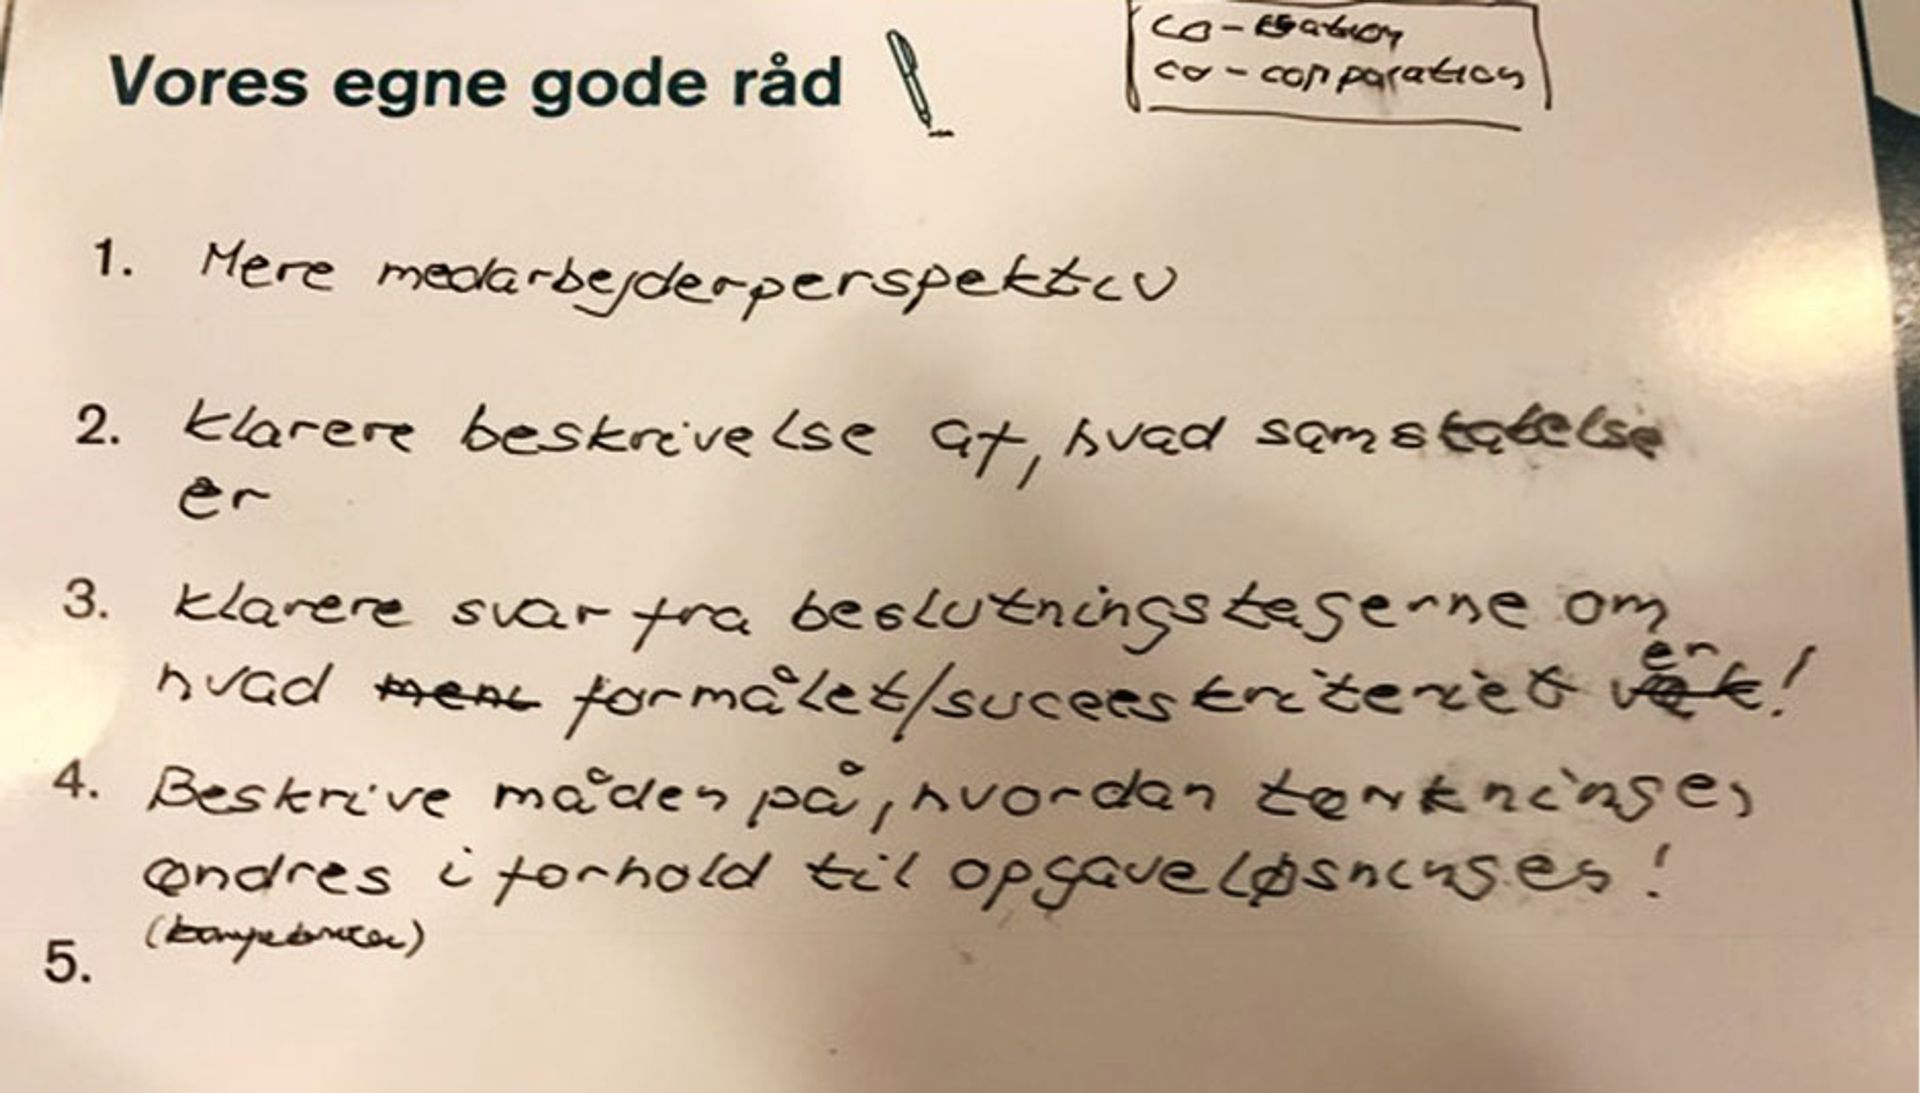 co-
co-conparation
Vores egne gode råd
1. Mere medarbejderperspektiv
2. Klarere beskrivelse af, hvad samskabelse
er
3. Klarere svar fra beslutningstagerne om
er
hvad formålet/succeskriteriet !
4. Beskrive måden på, hvordan tænkningen
ændres i forhold til opgaveløsningen!
(kompetencer)
5.